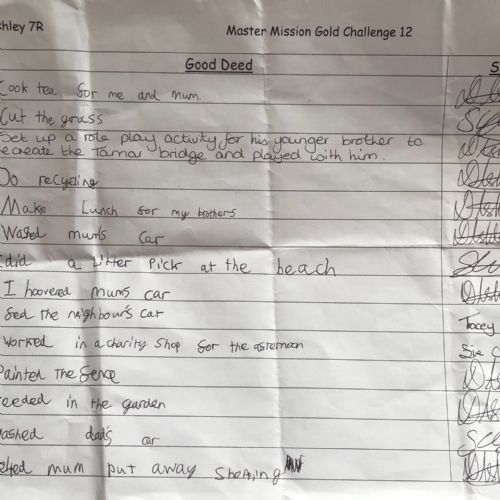 hley 7R Master Mission Gold Challenge 12
Good Deed S
Cook tea for me and mum.
Cut the grass
Set up a role play activity for his younger brother to
recreate the Tamar bridge and played with him.
Do recycling
Make Lunch for my brothers
Washed mum's car
I did a Litter Pick at the beach
I hoovered mums car
fed the neighbour's cat Tracey
worked in a charity shop for the afternoon Sue
Painted The fence
weeded in the garden
washed dad's car
helped mum put away shopping